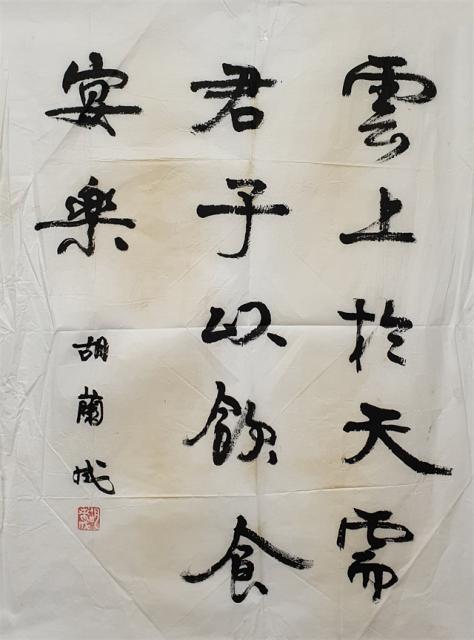 雲上於天需
君子以飲食
宴樂
胡蘭成